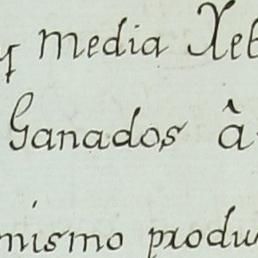 y media Xeb
Ganados â
mismo produ